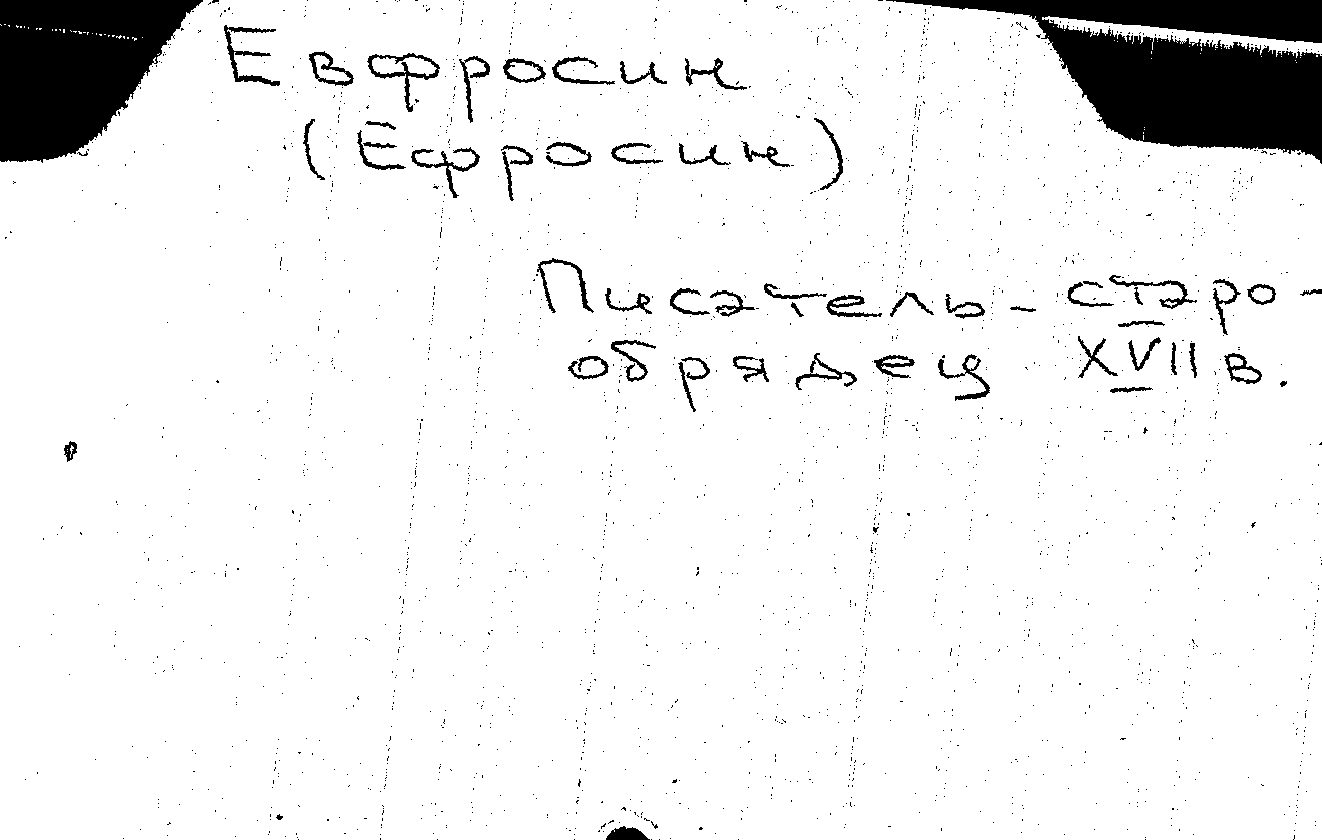 Евфросин
(Ефросин)
Писатель - старо-
обрядец XVII в.